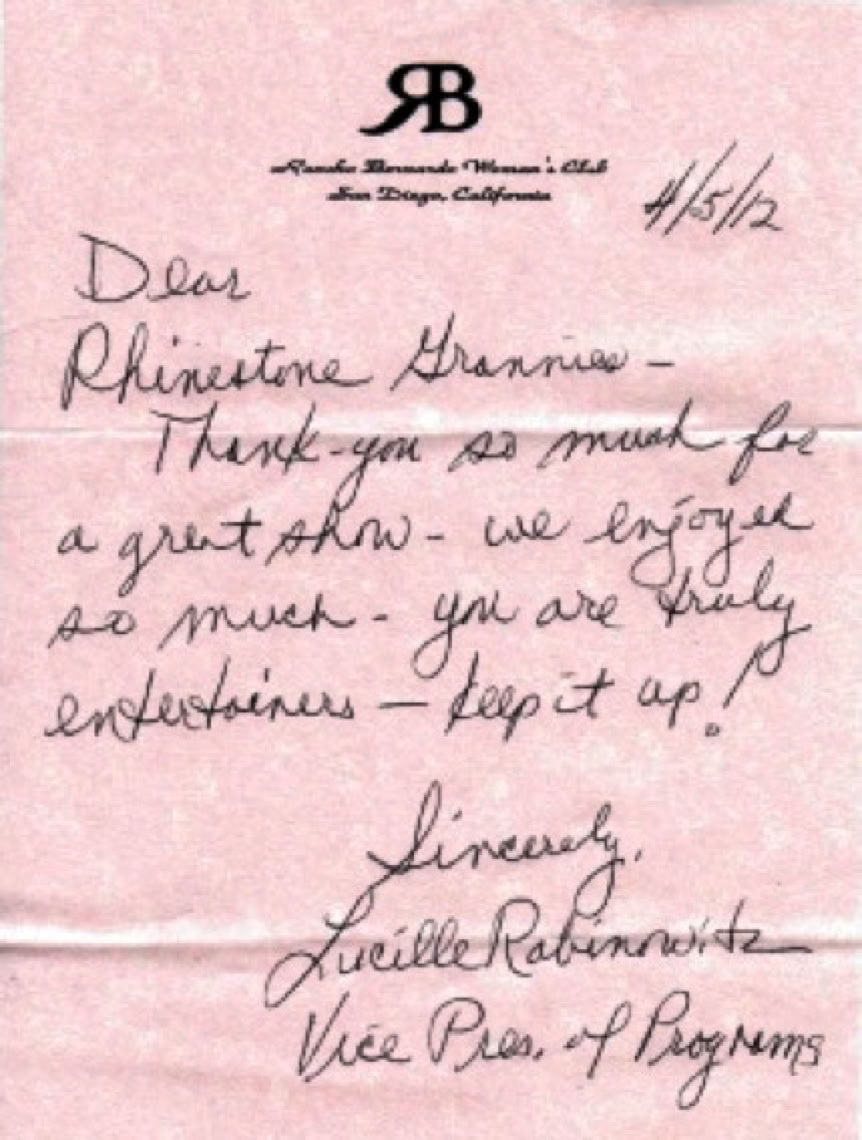 RB
Rancho Bernardo Woman's Club
San Diego, California
4/5/12
Dear
Rhinestone Grannies -
Thank-you so much for
a great show - we enjoyed
so much - you are truly
entertainers — keep it up!
Sincerely,
Lucille Rabinowitz
Vice Pres. of Programs